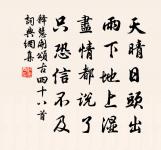 天晴日頭出
雨下地上濕
盡情都說了
只恐信不及
釋慧開頌古四十八首
詞典網集